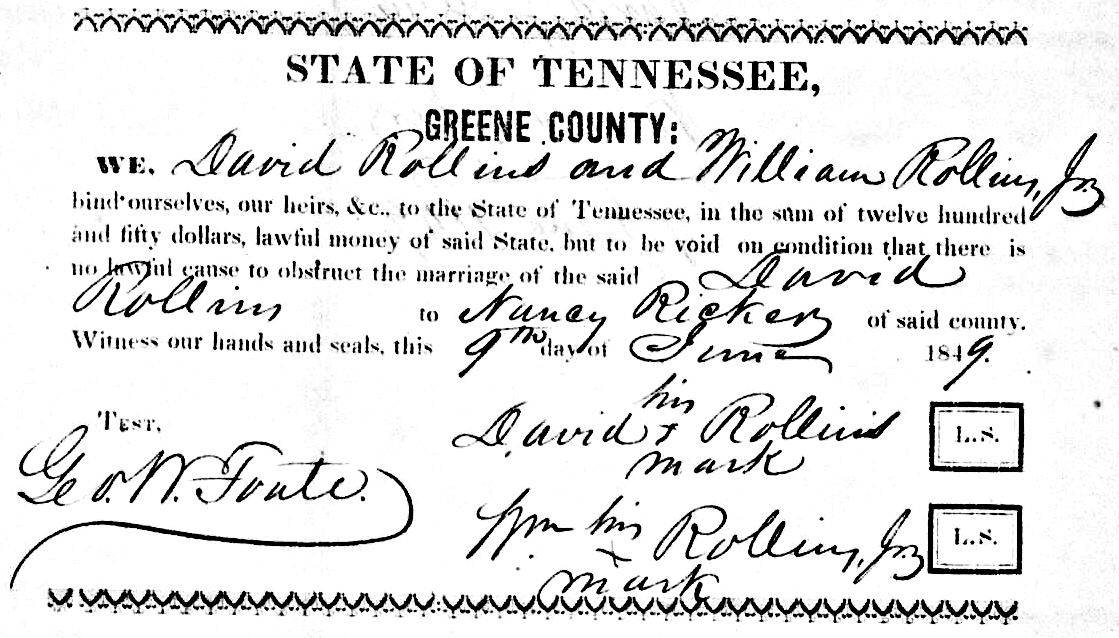 STATE OF TENNESSEE,
GREENE COUNTY:
WE, David Rollins and William Rollins, Jr
bind ourselves, our heirs, &c., to the State of Tennessee, in the sum of twelve hundred
and fifty dollars, lawful money of said State, but to be void on condition that there is
no lawful cause to obstruct the marriage of the said David
Rollins to Nancy Ricker of said county.
Witness our hands and seals, this 9th day of June 1849.
Test,
his
David x Rollins L.S.
mark
Geo. W. Foute.
Wm his Rollins, Jr L.S.
x
mark